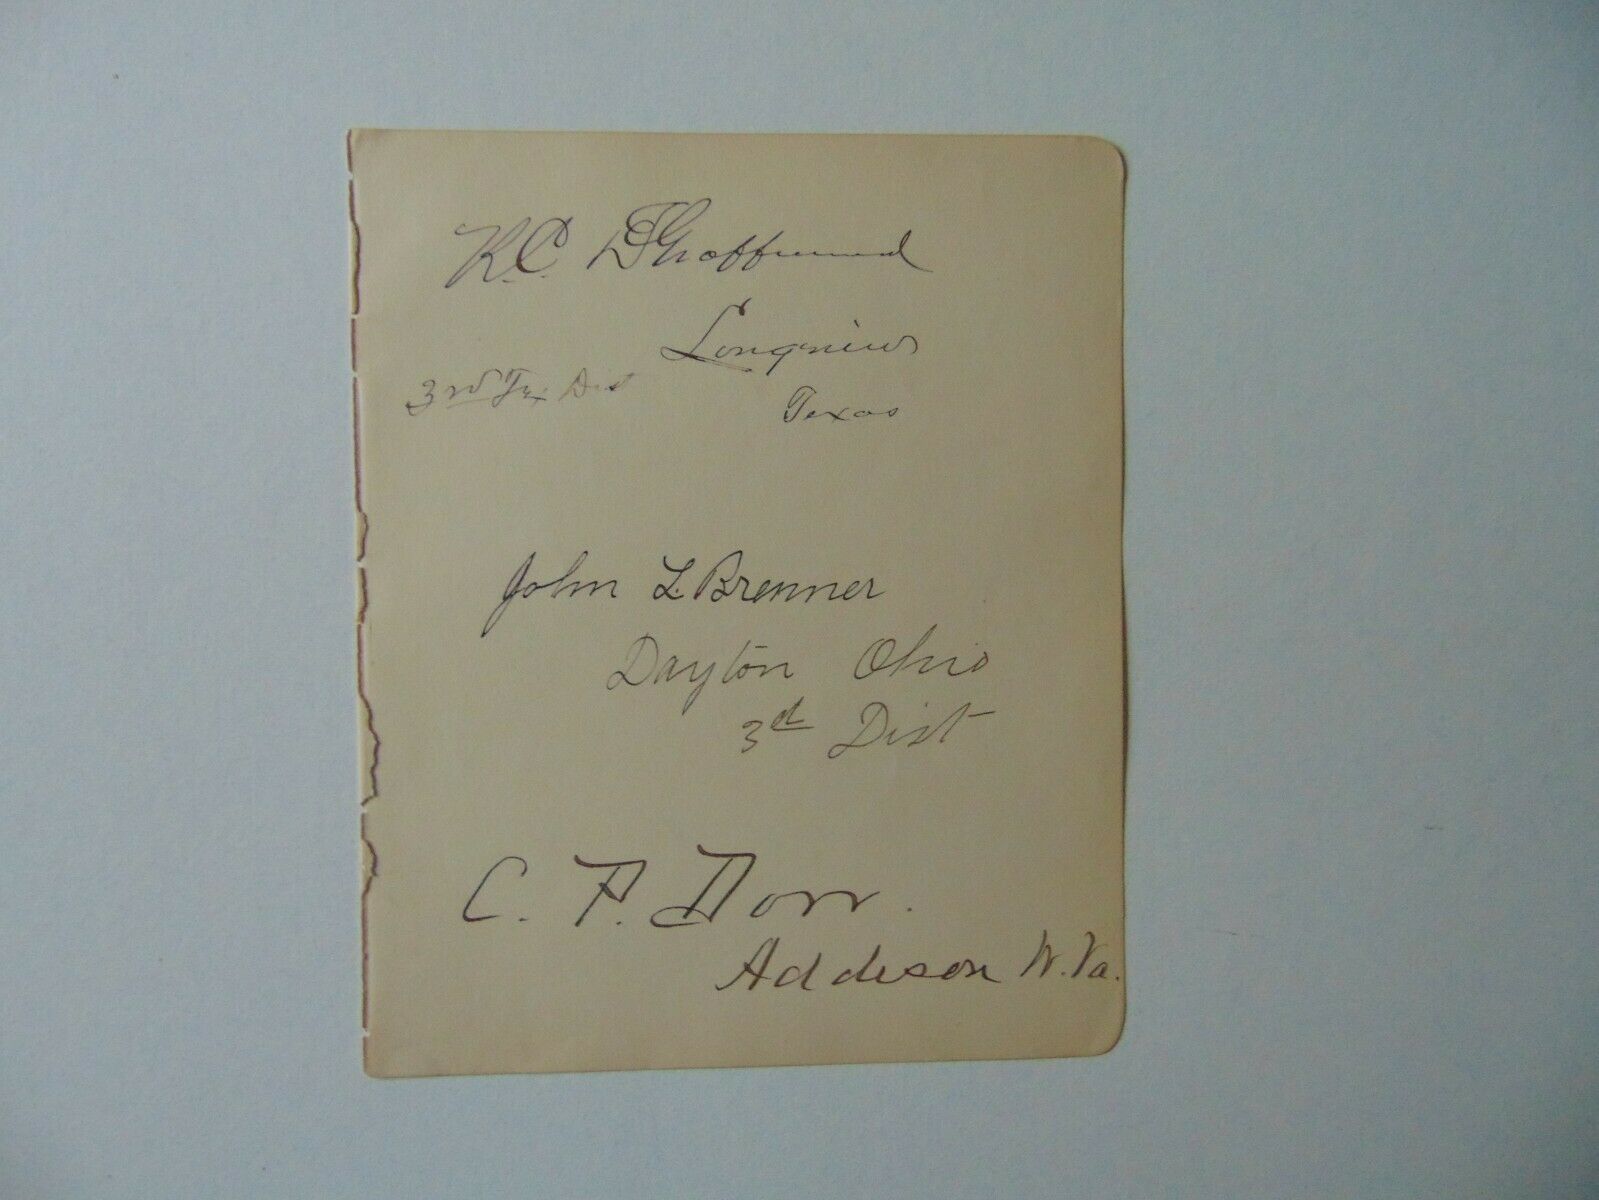 R.C. DeGraffenreid
Longview
3rd Tex Dis
Texas
John L. Brenner
Dayton Ohio
3d Dist
C. P. Dorr.
Addison W. Va.